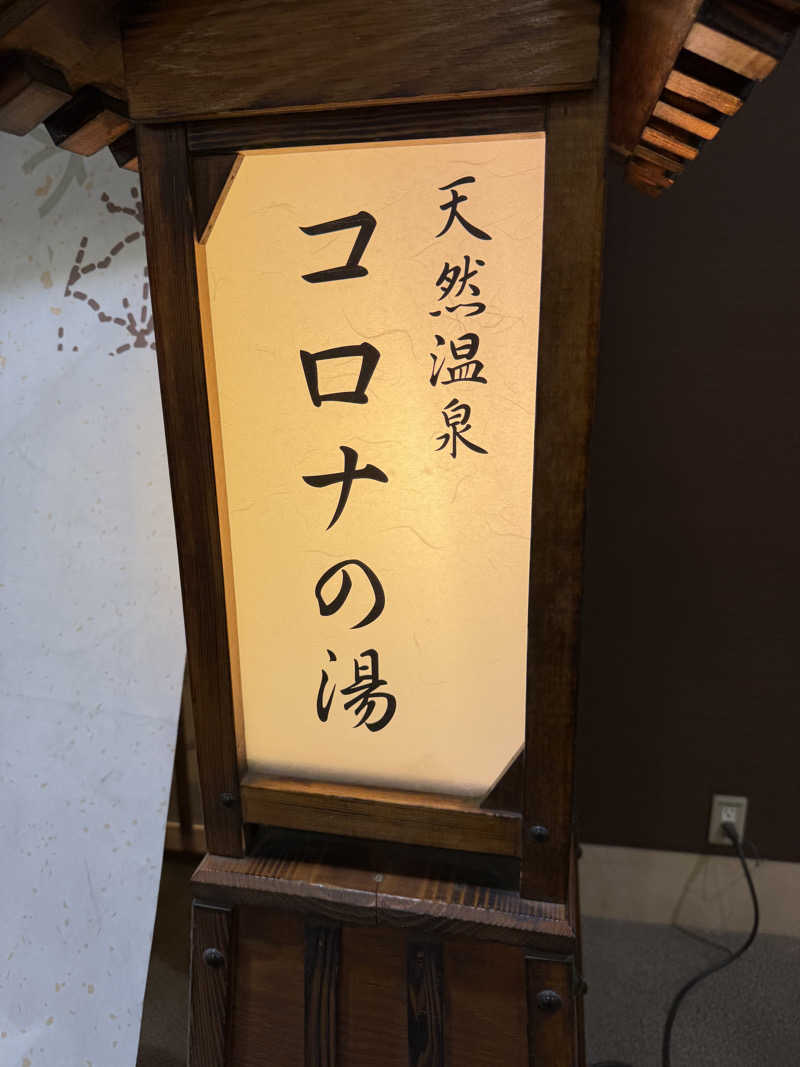 天然温泉
コロナの湯